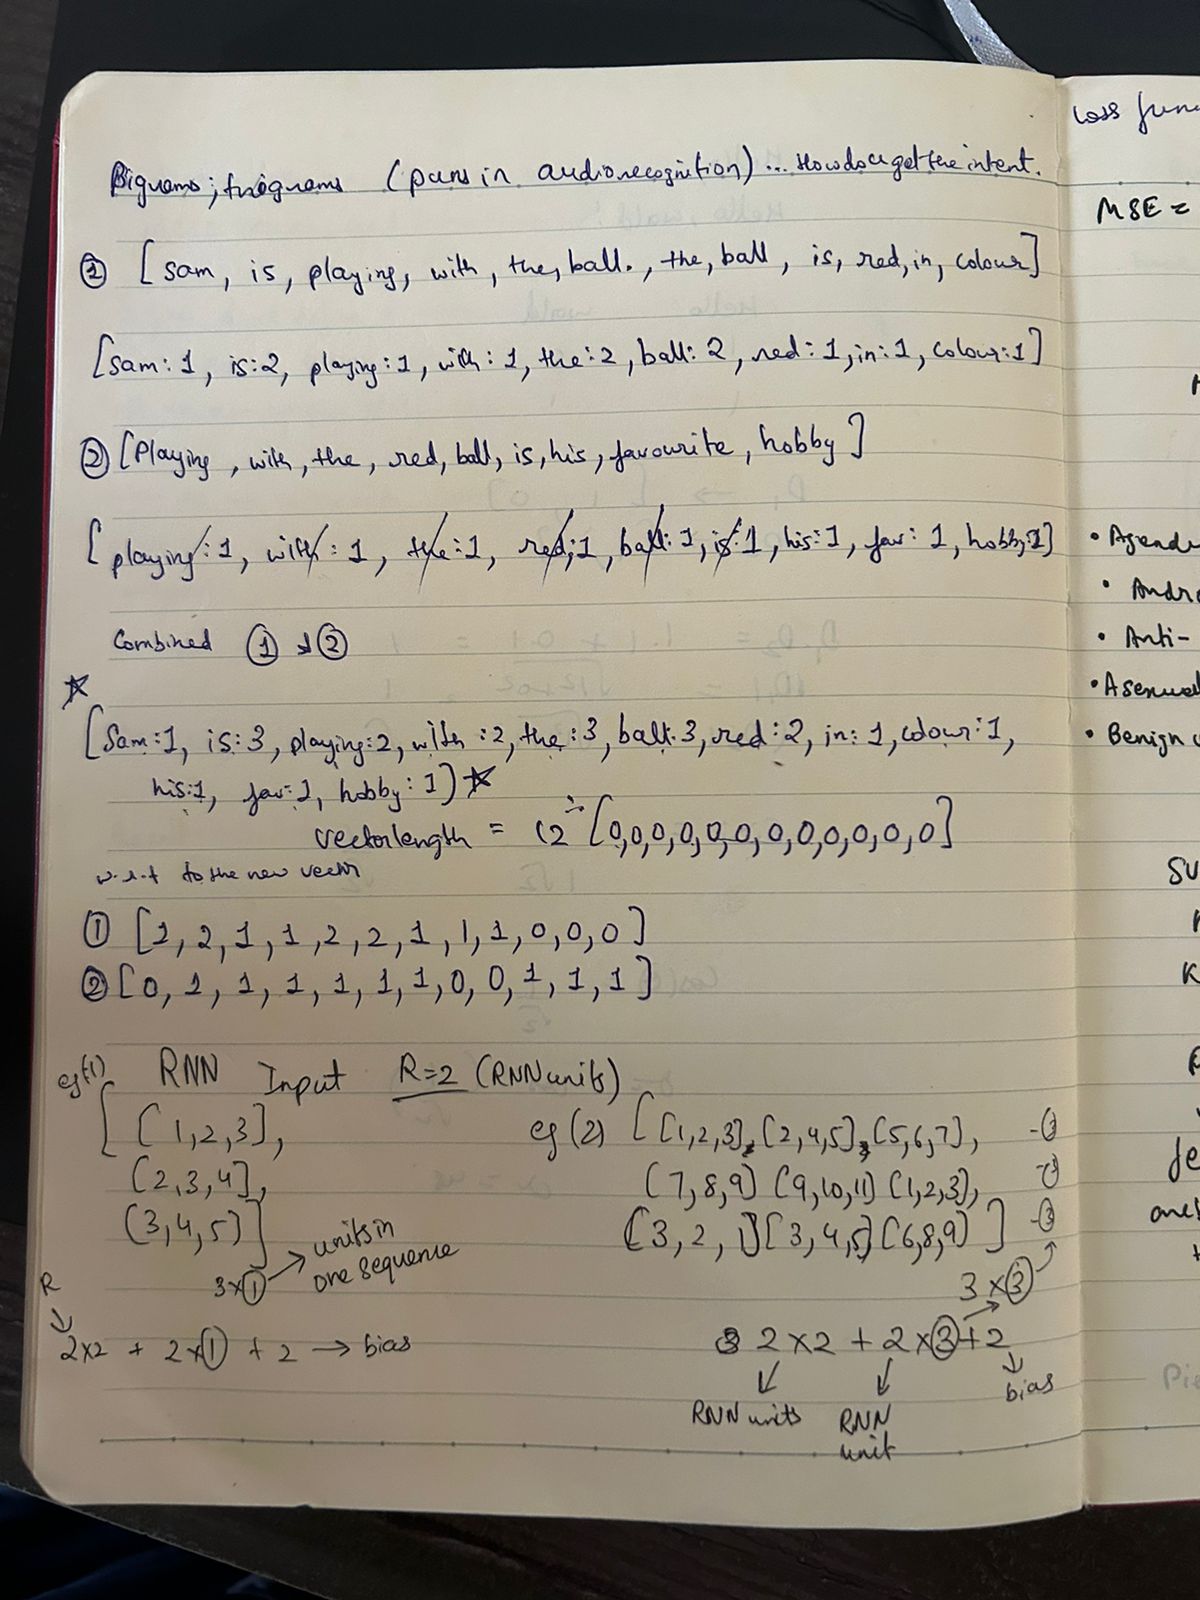 Bigrams; trigrams (puns in audio recognition) ... How do u get the intent.
① [Sam, is, playing, with, the, ball., the, ball, is, red, in, colour]
[Sam: 1, is: 2, playing: 1, with: 1, the: 2, ball: 2, red: 1, in: 1, colour: 1]
② [Playing, with, the, red, ball, is, his, favourite, hobby]
[playing: 1, with: 1, the: 1, red: 1, ball: 1, is: 1, his: 1, fav: 1, hobby: 1]
Combined ① & ②
[Sam: 1, is: 3, playing: 2, with: 2, the: 3, ball: 3, red: 2, in: 1, colour: 1,
his: 1, fav: 1, hobby: 1]
Vector length = 12 [0,0,0,0,0,0,0,0,0,0,0,0]
w.r.t to the new vector
① [1, 2, 1, 1, 2, 2, 1, 1, 1, 0, 0, 0]
② [0, 1, 1, 1, 1, 1, 1, 0, 0, 1, 1, 1]
eg(1) RNN Input R=2 (RNN units)
[ [1,2,3],
[2,3,4],
[3,4,5] ]
3×1 → units in
one sequence
R
2×2 + 2×1 + 2 → bias
eg (2) [ [1,2,3], [2,4,5], [5,6,7],
[7,8,9] [9,10,11] [1,2,3],
[3,2,1] [3,4,5] [6,8,9] ]
3×3
2×2 + 2×3 + 2
RNN units RNN bias
unit
Loss func
MSE =
• Agend
• Andr
• Anti-
• Asexual
• Benign
SU
K